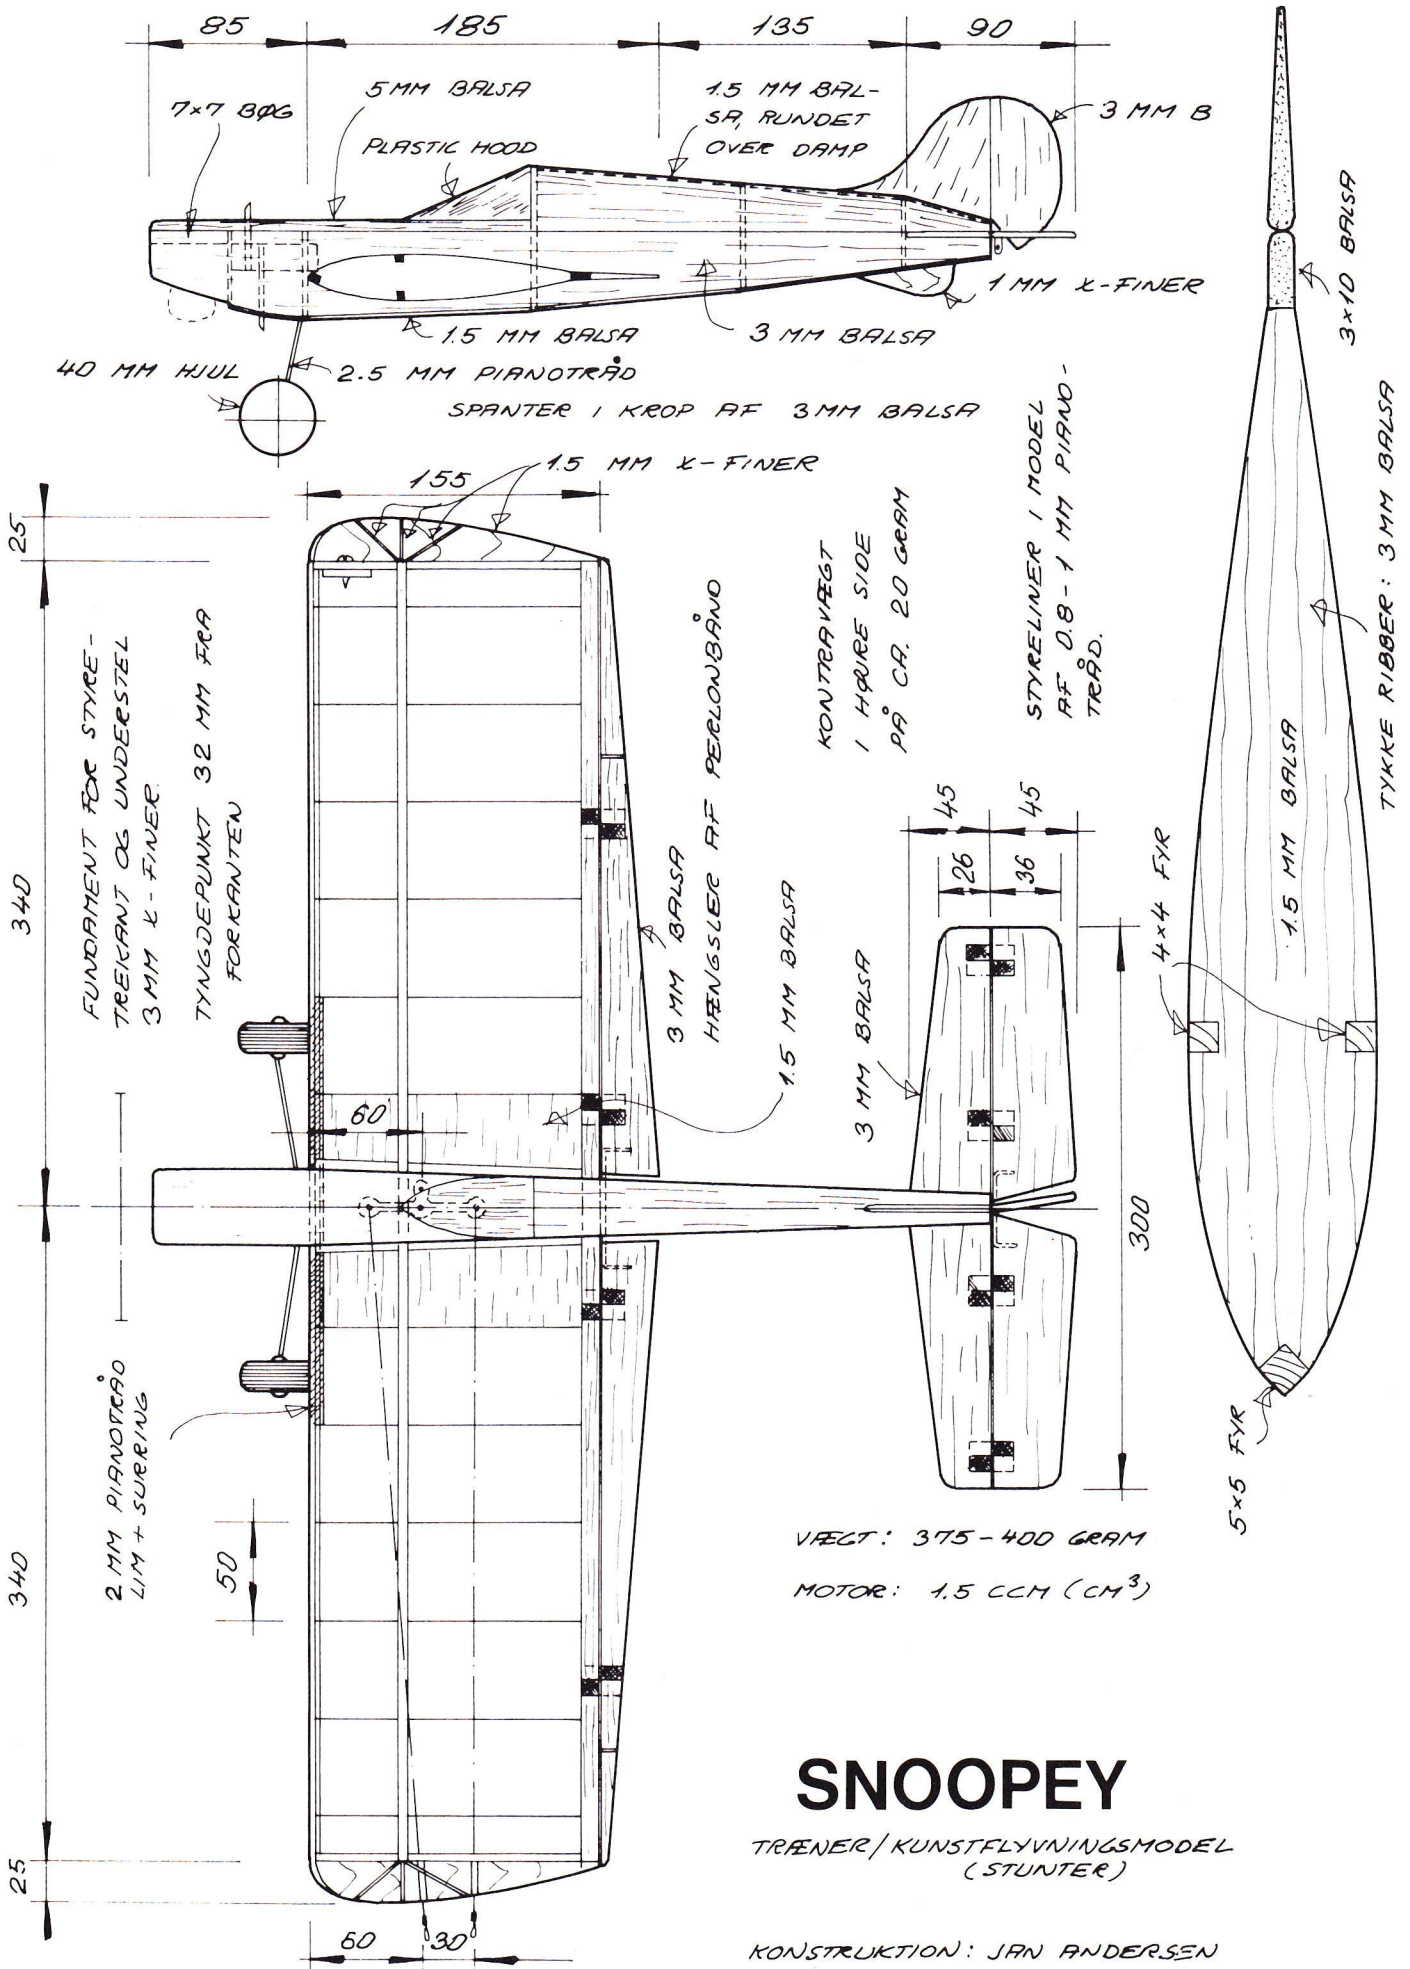 85
185
135
90
7×7 BØG
5 MM BALSA
PLASTIC HOOD
1.5 MM BAL-
SA, RUNDET
OVER DAMP
3 MM B
1 MM X-FINER
1.5 MM BALSA
3 MM BALSA
40 MM HJUL
2.5 MM PIANOTRÅD
SPANTER I KROP AF 3 MM BALSA
3×10 BALSA
TYKKE RIBBER: 3 MM BALSA
1.5 MM BALSA
4×4 FYR
5×5 FYR
155
1.5 MM X-FINER
25
340
340
25
FUNDAMENT FOR STYRE-
TREKANT OG UNDERSTEL
3 MM X-FINER.
TYNGDEPUNKT 32 MM FRA
FORKANTEN
3 MM BALSA
HÆNGSLER AF PERLONBÅND
1.5 MM BALSA
KONTRAVÆGT
I HØJRE SIDE
PÅ CA. 20 GRAM
STYRELINER I MODEL
AF 0.8-1 MM PIANO-
TRÅD.
60
45
45
26
36
3 MM BALSA
300
2 MM PIANOTRÅD
LIM + SURRING
50
60
30
VÆGT: 375-400 GRAM
MOTOR: 1.5 CCM (CM³)
SNOOPEY
TRÆNER/KUNSTFLYVNINGSMODEL
(STUNTER)
KONSTRUKTION: JAN ANDERSEN